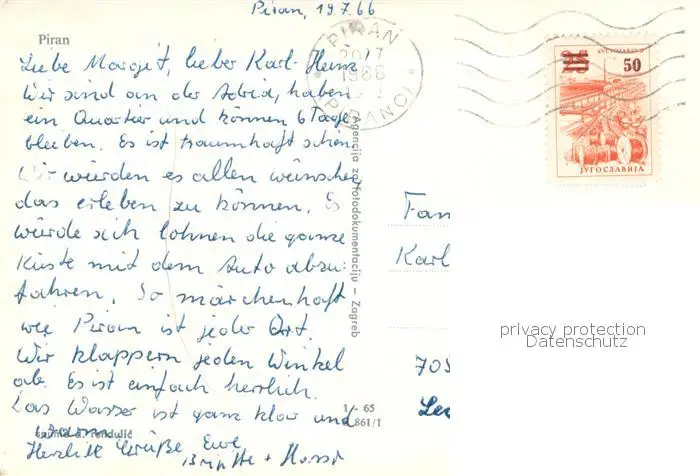 Piran, 19.7.66
Piran
Liebe Margit, lieber Karl-Heinz
Wir sind an der Adria, haben
ein Quartier und können 6 Tage
bleiben. Es ist traumhaft schön
Wir würden es allen wünschen
das erleben zu können. Es
würde sich lohnen die ganze
Küste mit dem Auto abzu-
fahren. So märchenhaft
wie Piran ist jeder Ort.
Wir klappern jeden Winkel
ab. Es ist einfach herrlich.
Das Wasser ist ganz klar und
warm
Herzliche Grüße Eure
Brigitte +
Agencija za fotodokumentaciju - Zagreb
1 - 65
861/1
PIRAN
1966
PIRANO
JUGOSLAVENO
25 50
JYГOCЛABИJA
Fam
Karl
705
privacy protection
Datenschutz